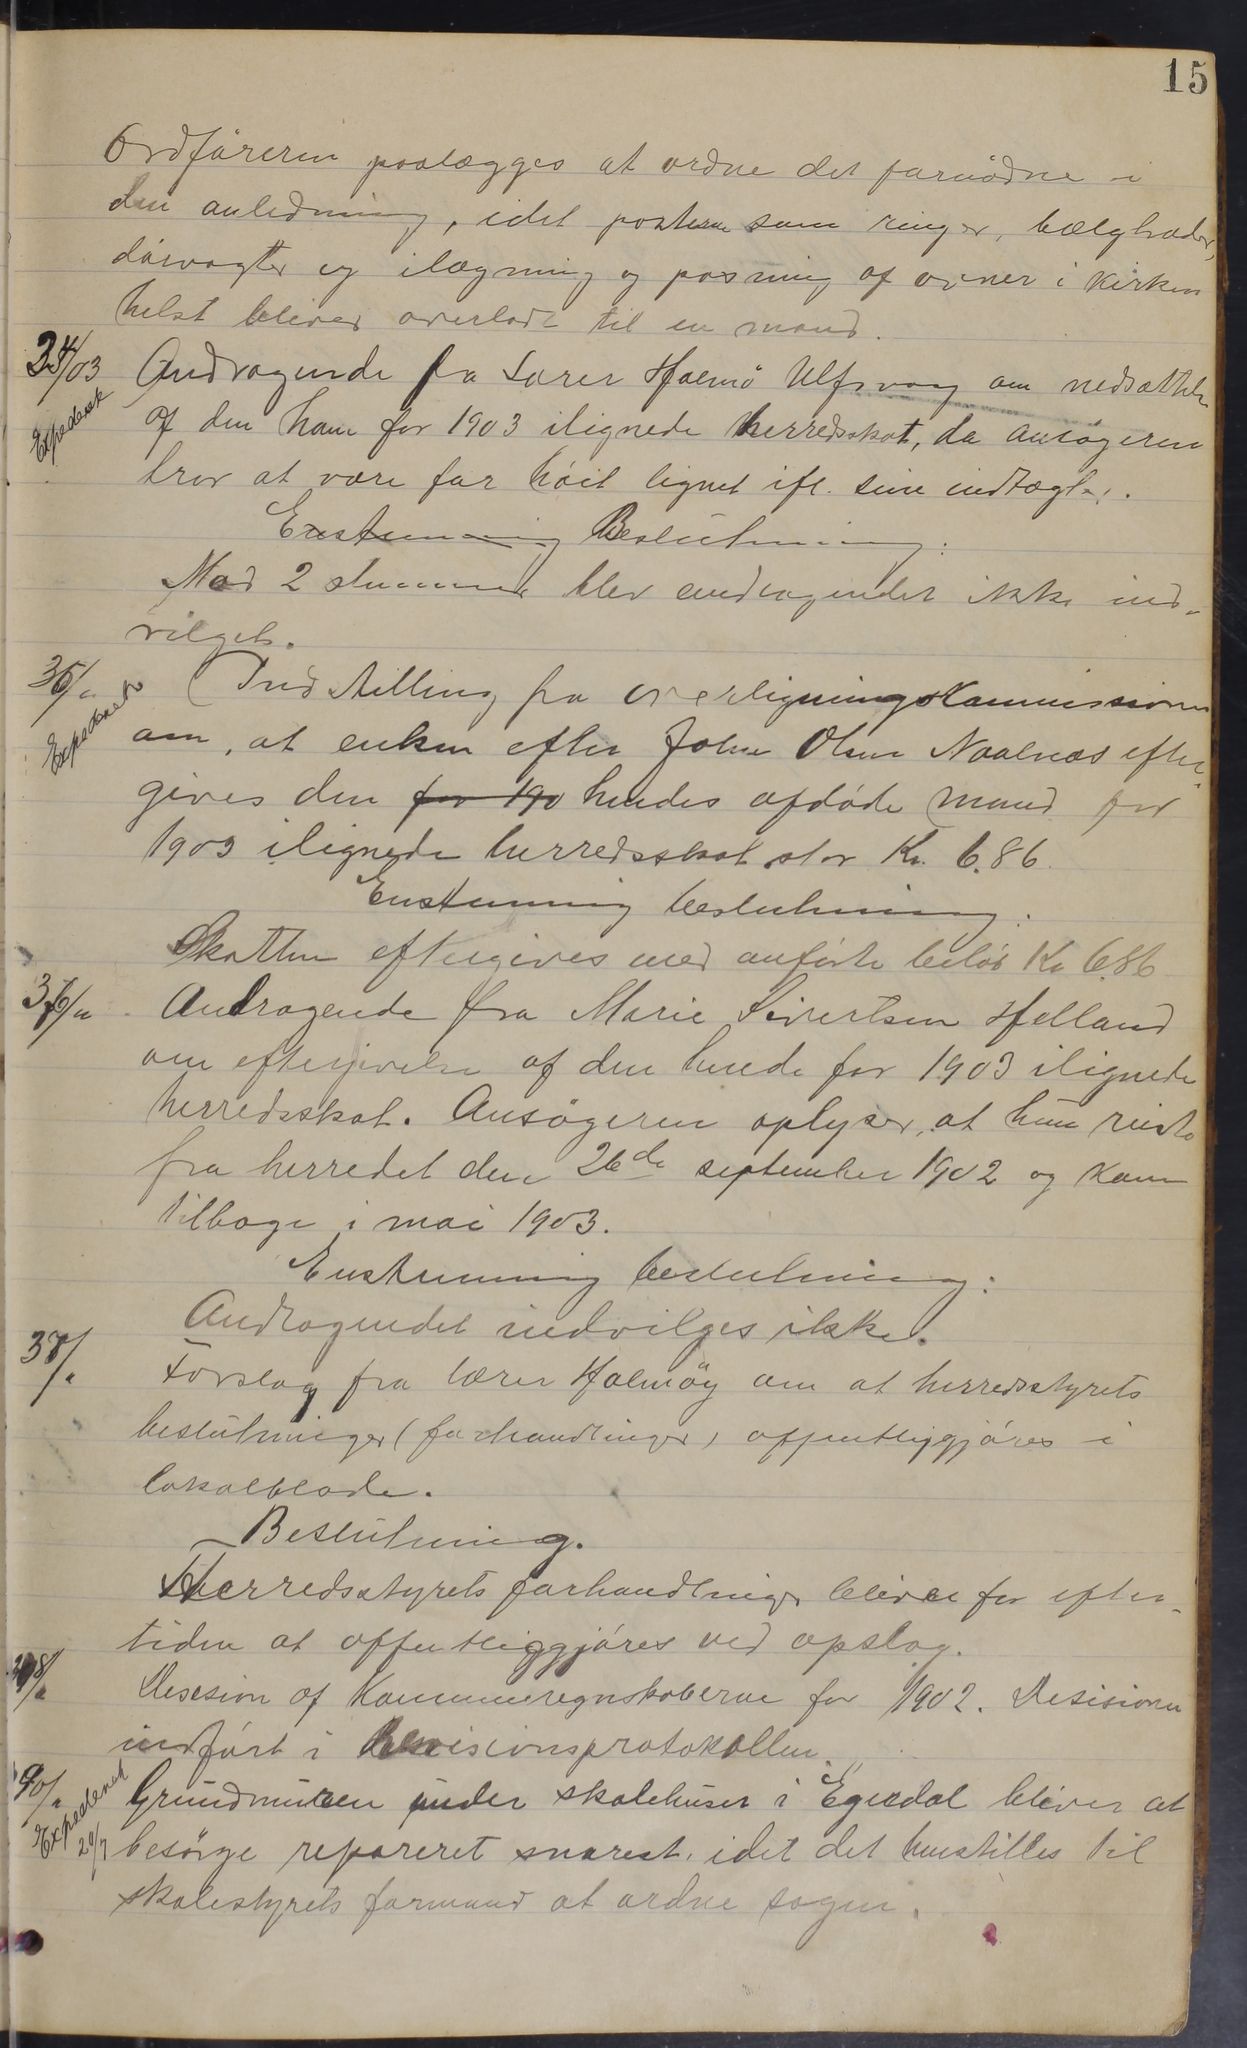 15
Ordføreren paalægges at ordne det fornødne i
den anledning, idet posterne som ringer, bælgtræder,
dørvogter og ilægning og pasning af ovner i kirken
helst bliver overladt til en mand.
34/03 Andragende fra Lærer Halmø Ulfsvaag om nedsættelse
Expederet af den ham for 1903 ilignede herredsskat, da ansøgeren
tror at være for høit lignet ifl. sine indtægter.
Enstemmig Beslutning:
Mod 2 stemmer blev andragendet ikke ind-
vilget.
35/" Indstilling fra overligningskommissionen
Expederet om, at enken efter Johan Olsen Naalnæs efter-
gives den for 190 hendes afdøde mand for
1903 ilignede herredsskat stor Kr. 6.86.
Enstemmig beslutning:
Skatten eftergives med anførte beløb Kr 6.86
36/" Andragende fra Marie Sivertsen Helland
om eftergivelse af den hende for 1903 ilignede
herredsskat. Ansøgeren oplyser, at hun reiste
fra herredet den 26de september 1902 og kom
tilbage i mai 1903.
Enstemmig beslutning:
Andragendet indvilges ikke.
37/" Forslag fra lærer Halmøy om at herredsstyrets
beslutninger (forhandlinger) offentliggjøres i
lokalblade.
Beslutning.
Herredsstyrets forhandlinger bliver for efter-
tiden at offentliggjøres ved opslag.
38/" Desision af Kommuneregnskaberne for 1902. Desisionen
indført i Revisionsprotokollen.
40/" Grundmuren under skolehuset i Egedal bliver at
Expederet 20/7 besørge repareret snarest, idet det henstilles til
skolestyrets formand at ordne sagen.